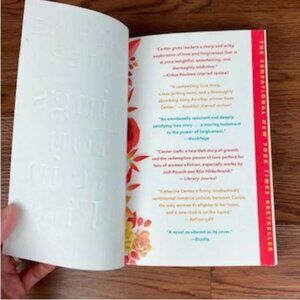 "Center gives readers a sharp and witty
exploration of love and forgiveness that is
at once insightful, entertaining, and
thoroughly addictive."
—Kirkus Reviews (starred review)
"A compelling love story,
a tear-jerking twist, and a thoroughly
absorbing story. Another winner from
Center." —Booklist (starred review)
"An emotionally resonant and deeply
satisfying love story ... a moving testament
to the power of forgiveness."
—BookPage
"Center crafts a heartfelt story of growth
and the redemptive power of love perfect for
fans of women's fiction, especially works by
Jodi Picoult and Elin Hilderbrand."
—Library Journal
"Katherine Center's funny,
sentimental romance unfolds between Cassie,
the only woman firefighter in her town,
and a new rookie on the squad."
—Refinery29
"A novel as vibrant as its cover."
—Bustle
THE SENSATIONAL NEW YORK TIMES BESTSELLER